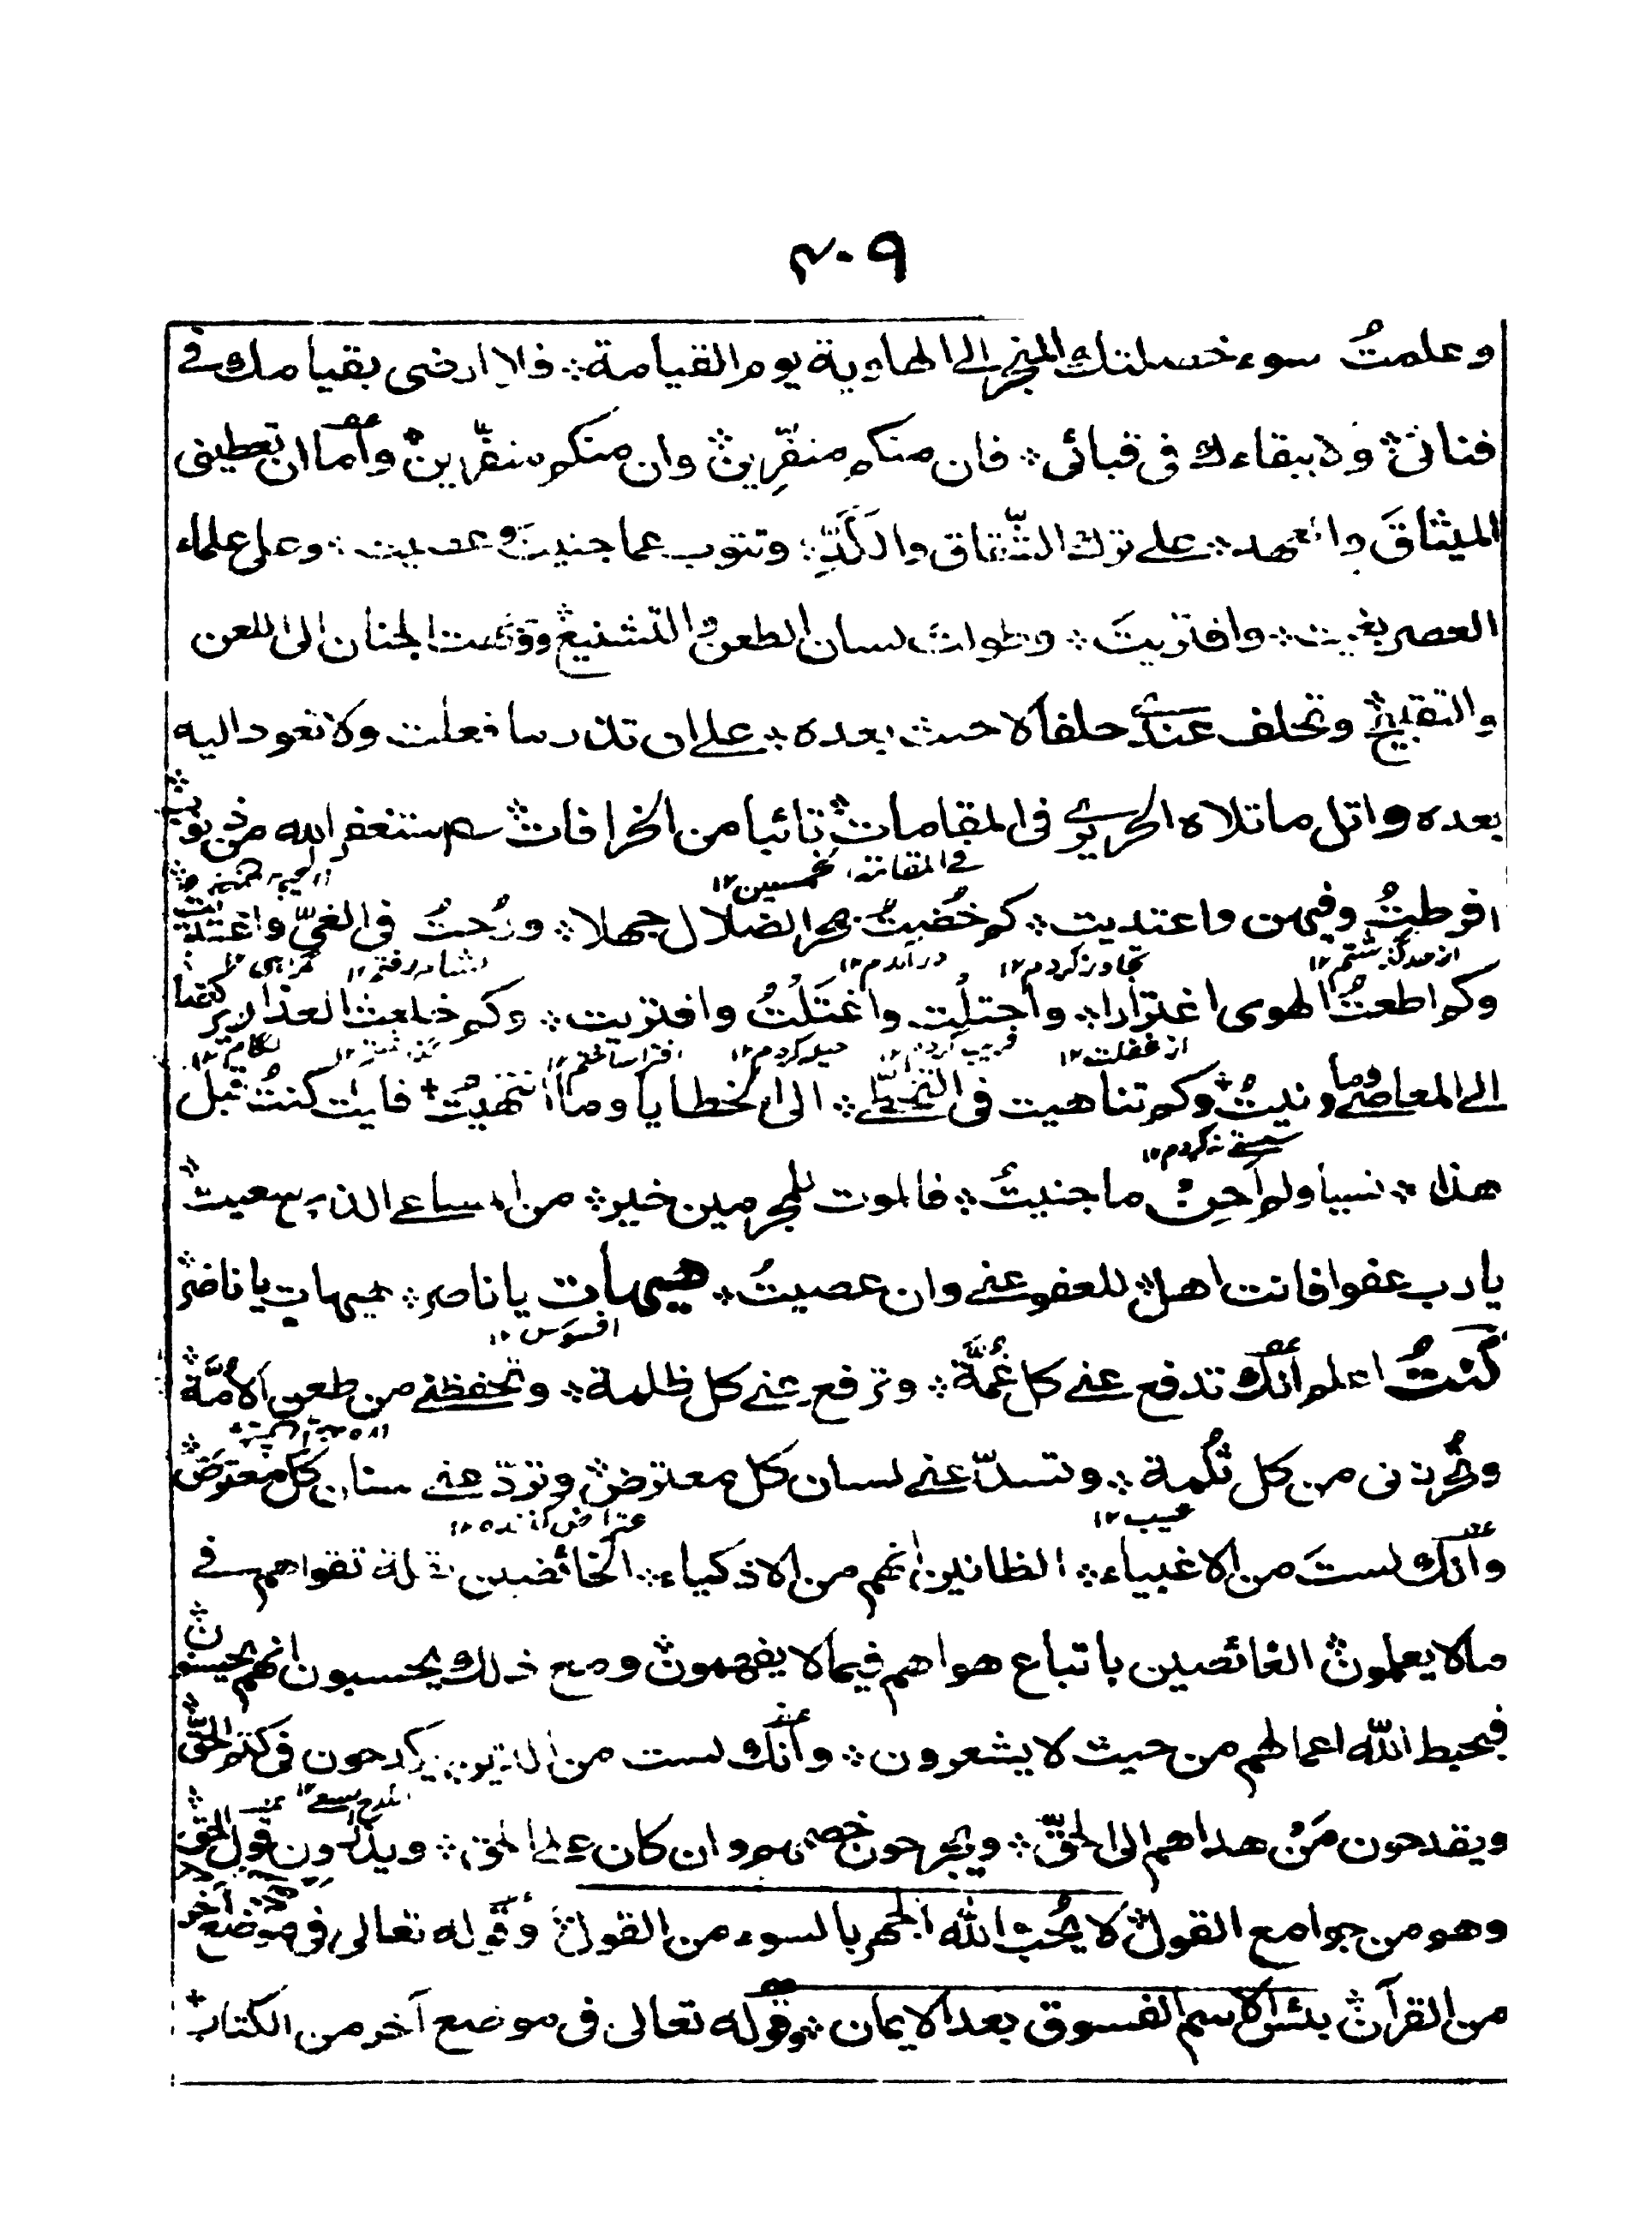 ٣٠٩
وعلمتُ سوء خصلتك المنجر الى الهاوية يوم القيامة ؞ فلا ارضى بقيامك فى
فنائى ؞ ولا ببقاءك فى قبائى ؞ فان منكم منفِّرين ؞ وان منكم منفّرين ؞ وأمّا ان تعطينى
الميثاقَ والعهد ؞ على ترك الشّقاق واللَّدَدِ ؞ وتتوب عما جنيتَ وعصيت ؞ وعلى علماء
العصر بغيت ؞ وافتريتَ ؞ وطولتَ لسان الطعن والتشنيع ؞ ووقعت الجنان الى اللعن
والتقبيح ؞ وتحلف عندى حلفا لا حنث بعده ؞ على ان تذر ما فعلت ولا تعود اليه
بعده واتل ما تلاه الحريرى فى المقامات ؞ تائبا من الخرافات ؞ استغفر الله من ذنوب ؞
فى المقامة الخمسين ١٢
افرطتُ فيهن واعتديت ؞ كم خُضتُ بحر الضلال جهلا ؞ ورُحتُ فى الغىّ واغتديت
از حد گذشتم ١٢ تجاوز كردم ١٢ درآمدم ١٢
وكم اطعتُ الهوى اغترارا ؞ واجتلت واغتَلْتُ وافتريت ؞ وكم خلعت العذار ركضا
از غفلت ١٢ فريب كردم ١٢ حيله كردم ١٢ افترا ساختم ١٢ لگام ١٢
الى المعاصى وما ونيتُ ؞ وكم تناهيت فى التخطّى ؞ الى الخطايا وما انتهيتُ ؞ فليت كنتُ قبل
سستى نكردم ١٢
هذا ؞ نسيا ولم اَجنِ ما جنيتُ ؞ فالموت للمجرمين خير ؞ من المساعى الذى سعيت ؞
يا رب عفوا فانت اهل ؞ للعفو عنى وان عصيتُ ؞ هيهات يا ناصر ؞ هيهات يا ناصر ؞
افسوس ١٢
كنتُ اعلم أنّك تدفع عنى كل غُمَّة ؞ وترفع عنى كل ظلمة ؞ وتحفظنى من طعن الأمّة ؞
وتُحرزنى من كل ثُلمة ؞ وتسدّ عنى لسان كل معترض ؞ وتردّ عنى سنان كل معترض ؞
عيب ١٢ اعتراض كننده ١٢
وأنّك لست من الاغبياء ؞ الظانين انهم من الاذكياء ؞ الخائضين بقلة تقواهم فى
ما لا يعلمون ؞ الغائصين باتباع هواهم فيما لا يفهمون ؞ ومع ذلك يحسبون انهم يحسنون ؞
فيحبط الله اعمالهم من حيث لا يشعرون ؞ وأنّك لست من الذين يكدحون فى كتم الحقّ ؞
ويقدحون مَنْ هداهم الى الحقّ ؞ ويجرحون خصمهم وان كان على الحق ؞ ويذرون قول الحق
وهو من جوامع القول ؞ لا يُحبّ الله الجهر بالسوء من القول ؞ وقوله تعالى فى موضع آخر
من القرآن ؞ بئس الاسم الفسوق بعد الايمان ؞ وقوله تعالى فى موضع آخر من الكتاب ؞